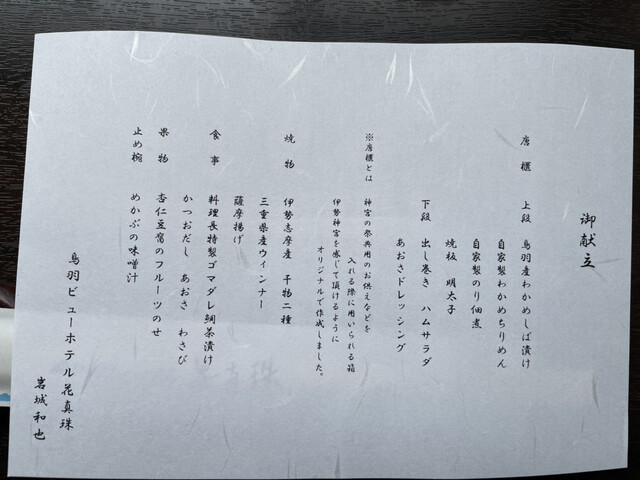 御献立
唐櫃 上段 鳥羽産わかめしば漬け
自家製わかめちりめん
自家製のり佃煮
焼板 明太子
下段 出し巻き ハムサラダ
あおさドレッシング
※唐櫃とは 神宮の祭典用のお供えなどを
入れる際に用いられる箱
伊勢神宮を感じて頂けるように
オリジナルで作成しました。
焼物 伊勢志摩産 干物二種
三重県産ウインナー
薩摩揚げ
食事 料理長特製ゴマダレ鯛茶漬け
かつおだし あおさ わさび
果物 杏仁豆腐のフルーツのせ
止め椀 めかぶの味噌汁
鳥羽ビューホテル花真珠
岩城和也